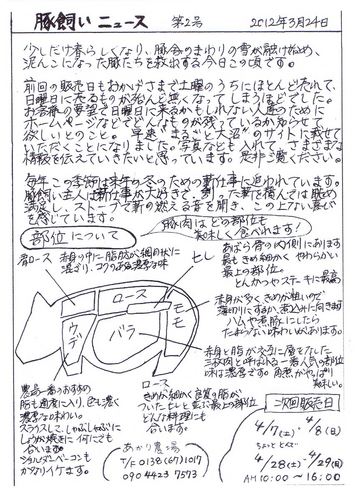 豚飼いニュース 第2号 2012年3月24日
少しだけ春らしくなり、豚舎のまわりの雪が融け始め、
泥んこになった豚たちを救出する今日この頃です。
前回の販売日もおかげさまで土曜のうちにほとんど売れて、
日曜日に売るものが殆んど無くなってしまうほどでした。
お客様の要望で日曜日に来るかもしれない人達のために
ホームページなどでどんなものが残っているか知らせて
欲しいとのこと。早速“まるごと大沼”のサイトに載せて
いただくことになりました。写真なども入れて、さまざまな
情報を伝えていきたいと思っています。是非ご覧ください。
毎年この季節は来年の冬のための薪仕事に追われています。
豚飼い主人は薪仕事が大好きで、割った薪を積んでは眺め
満足し、ストーブで薪の燃える音を聞き、この上ない喜び
を感じています。
部位について
豚肉はどの部位も
美味しく食べれます!
肩ロース
赤身の中に脂肪が網目状に
混ざり、コクのある濃厚な味
ヒレ
あばら骨の内側にあります
最もきめ細かく やわらかい
最上の部位。
とんかつやステーキに最高
ロース
ウデ
バラ
モモ
モモ
赤身が多く きめが粗いので
薄切りにするか、煮込みに向きます
ハムや煮豚にしたら
たまらない味わいがあります。
赤身と脂が交互に層をなした
三枚肉と呼ばれる一番人気の部位
味は濃厚です。角煮がやっぱり
美味しい。
農場一番のおすすめ
脂も適度に入り、色も濃く
濃厚な味わい。
スライスしてしゃぶしゃぶに
しょうが焼きに何にでも
合います。
ショルダーベーコンも
かなりイケます。
ロース
きめが細かく 良質の脂が
ついたヒレと並ぶ最上の部位
どんな料理にも
合います。
あかり農場
T/F 0138(67)1017
090 4423 7573
次回販売日
4/7(土) 4/8(日)
ちょっととんで
4/28(土) 4/29(日)
AM10:00 ~ 16:00